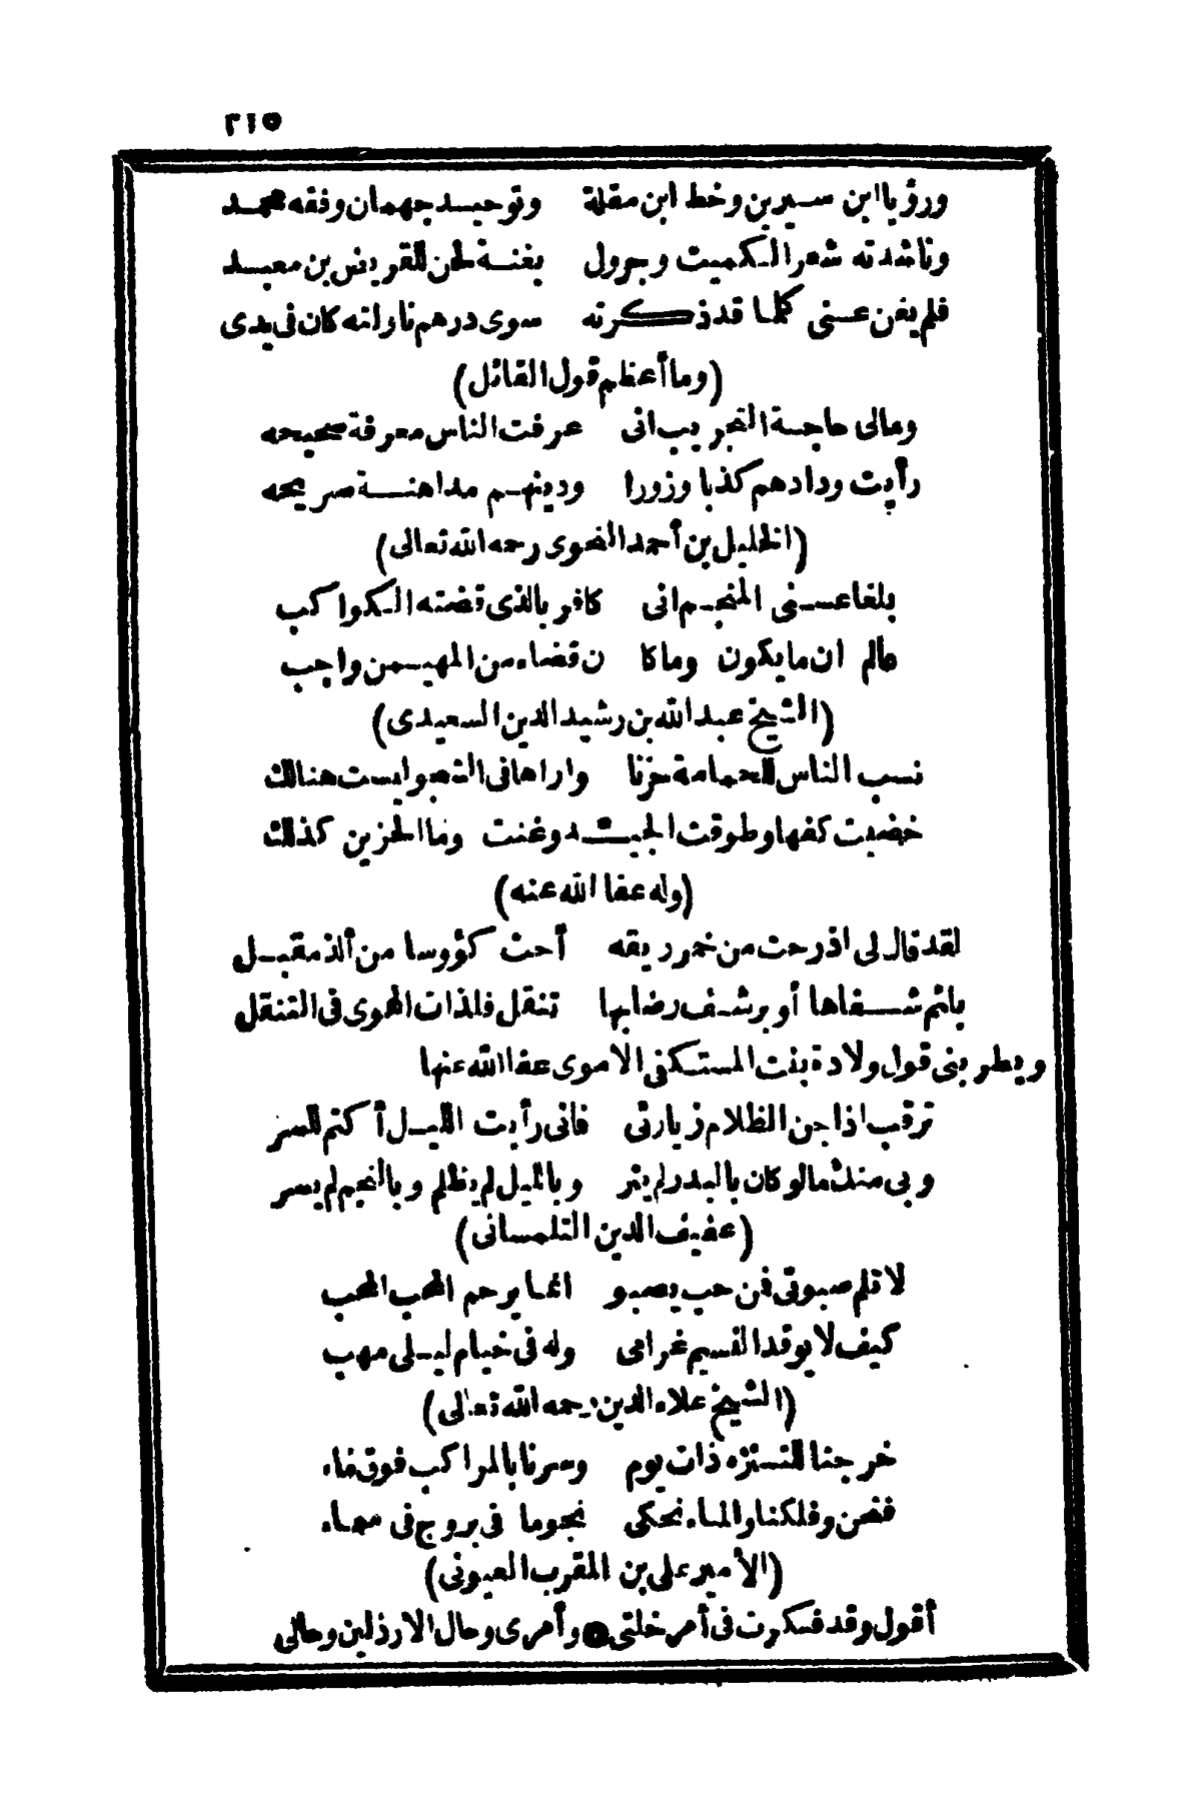 ٢١٥
ورؤيا ابن سيرين وخط ابن مقلة وتوحيد جهمان وفقه محمد
وناشدته شعر الكميت وجرول بغنة لحن للقريض بن معبد
فلم يغن عنى كلما قد ذكرته سوى درهم ناولته كان فى يدى
(وما أعظم قول القائل)
ومالى حاجة التجريب انى عرفت الناس معرفة صحيحه
رأيت ودادهم كذبا وزورا ودينهم مداهنة صريحه
(الخليل بن أحمد النحوى رحمه الله تعالى)
بلغا عنى المنجم انى كافر بالذى قضته الكواكب
عالم ان ما يكون وما كا ن قضاء من المهيمن واجب
(الشيخ عبد الله بن رشيد الدين السعيدى)
نسب الناس للحمامة حزنا واراها فى الشجو ليست هنالك
خضبت كفها وطوقت الجيد وغنت وما الحزين كذلك
(وله عفا الله عنه)
لقد قال لى اذ رحت من خمر ريقه أحث كؤوسا من ألذ مقبل
بلثم شفاها أو برشف رضابها تنقل فلذات الهوى فى التنقل
ويطربنى قول ولادة بنت المستكفى الاموى عفا الله عنها
ترقب اذا جن الظلام زيارتى فانى رأيت الليل أكتم للسر
وبى منك ما لو كان بالبدر لم ينر وبالليل لم يظلم وبالنجم لم يسر
(عفيف الدين التلمسانى)
لا تلم صبوتى فمن حب يصبو انما يرحم المحب المحب
كيف لا يوقد النسيم غرامى وله فى خيام ليلى مهب
(الشيخ علاء الدين رحمه الله تعالى)
خرجنا للتنزه ذات يوم وسرنا بالمراكب فوق ماء
فنحن وفلكنا والماء نحكى نجوما فى بروج فى سماء
(الأمير على بن المقرب العيونى)
أقول وقد فكرت فى أمر خلتى وأمرى وحال الارذلين وحالى